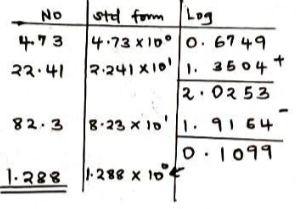 No Std form Log
4.73 4.73 × 10⁰ 0.6749
22.41 2.241 × 10¹ 1.3504 +
2.0253
82.3 8.23 × 10¹ 1.9154 -
0.1099
1.288 1.288 × 10⁰ ←